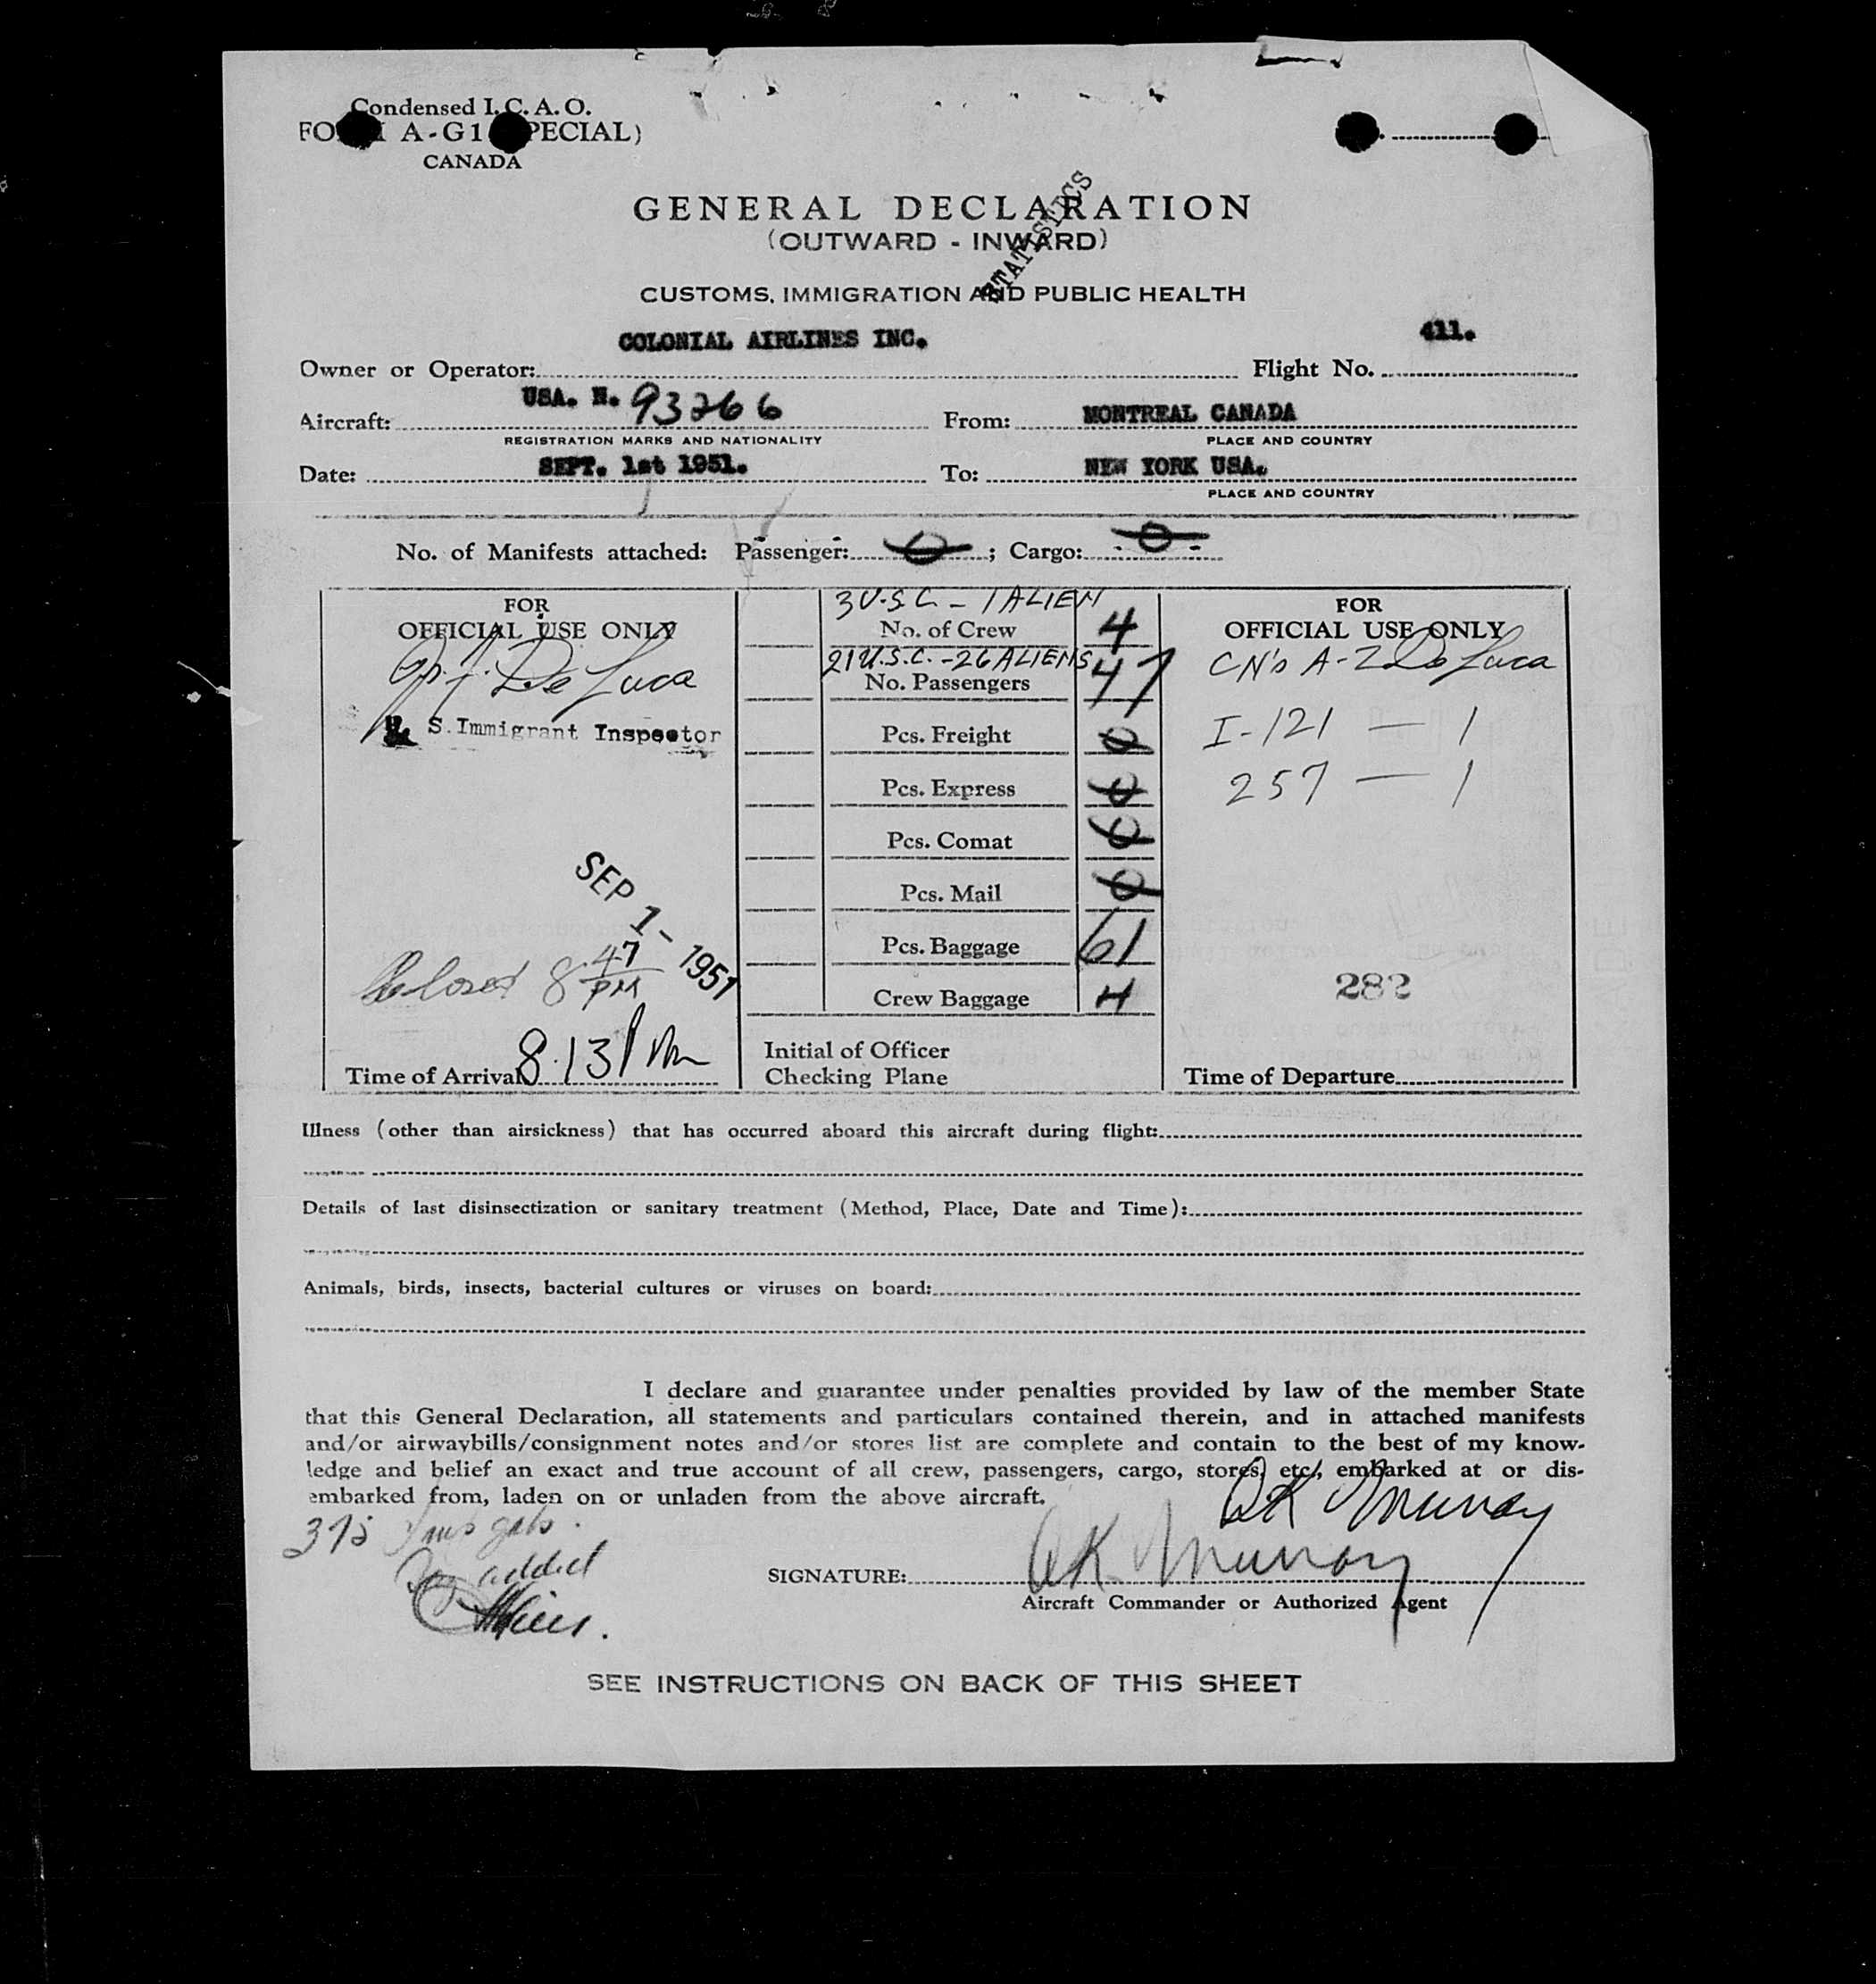 Condensed I.C.A.O.
FORM A-G1 (SPECIAL)
CANADA
GENERAL DECLARATION
(OUTWARD - INWARD)
STATISTICS
CUSTOMS, IMMIGRATION AND PUBLIC HEALTH
COLONIAL AIRLINES INC. 411.
Owner or Operator: Flight No.
Aircraft: USA. N. 93266 From: MONTREAL CANADA
REGISTRATION MARKS AND NATIONALITY PLACE AND COUNTRY
Date: SEPT. 1st 1951. To: NEW YORK USA.
PLACE AND COUNTRY
No. of Manifests attached: Passenger: 0 ; Cargo: 0
FOR
OFFICIAL USE ONLY
De Luca
U. S. Immigrant Inspector
SEP 1 - 1951
8 47 PM
Time of Arrival 8.13 Pm
3 U.S.C. - 1 ALIEN
No. of Crew 4
21 U.S.C. - 26 ALIENS
No. Passengers 47
Pcs. Freight 0
Pcs. Express 0
Pcs. Comat 0
Pcs. Mail 0
Pcs. Baggage 61
Crew Baggage 4
Initial of Officer
Checking Plane
FOR
OFFICIAL USE ONLY
CN's A-Z De Luca
I-121 — 1
257 — 1
282
Time of Departure
Illness (other than airsickness) that has occurred aboard this aircraft during flight:
Details of last disinsectization or sanitary treatment (Method, Place, Date and Time):
Animals, birds, insects, bacterial cultures or viruses on board:
I declare and guarantee under penalties provided by law of the member State
that this General Declaration, all statements and particulars contained therein, and in attached manifests
and/or airwaybills/consignment notes and/or stores list are complete and contain to the best of my know-
ledge and belief an exact and true account of all crew, passengers, cargo, stores, etc., embarked at or dis-
embarked from, laden on or unladen from the above aircraft.
OK Murray
375 gals.
added
SIGNATURE: OK Murray
Aircraft Commander or Authorized Agent
SEE INSTRUCTIONS ON BACK OF THIS SHEET